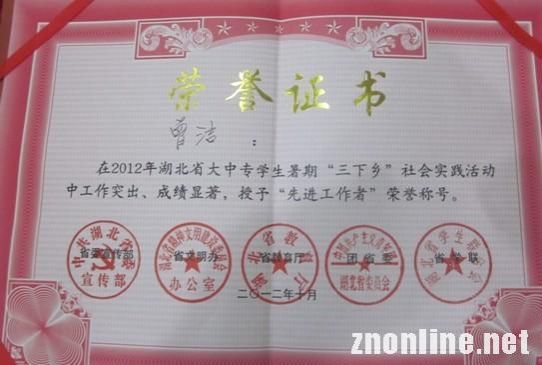 荣誉证书
曾洁：
在2012年湖北省大中专学生暑期“三下乡”社会实践活动
中工作突出、成绩显著，授予“先进工作者”荣誉称号。
省委宣传部 省文明办 省教育厅 团省委 省学联
中共湖北省委
宣传部
湖北省精神文明建设委员会
办公室
湖北省教育厅
湖北省委员会
湖北省学生联合会
二〇一二年十月
znonline.net